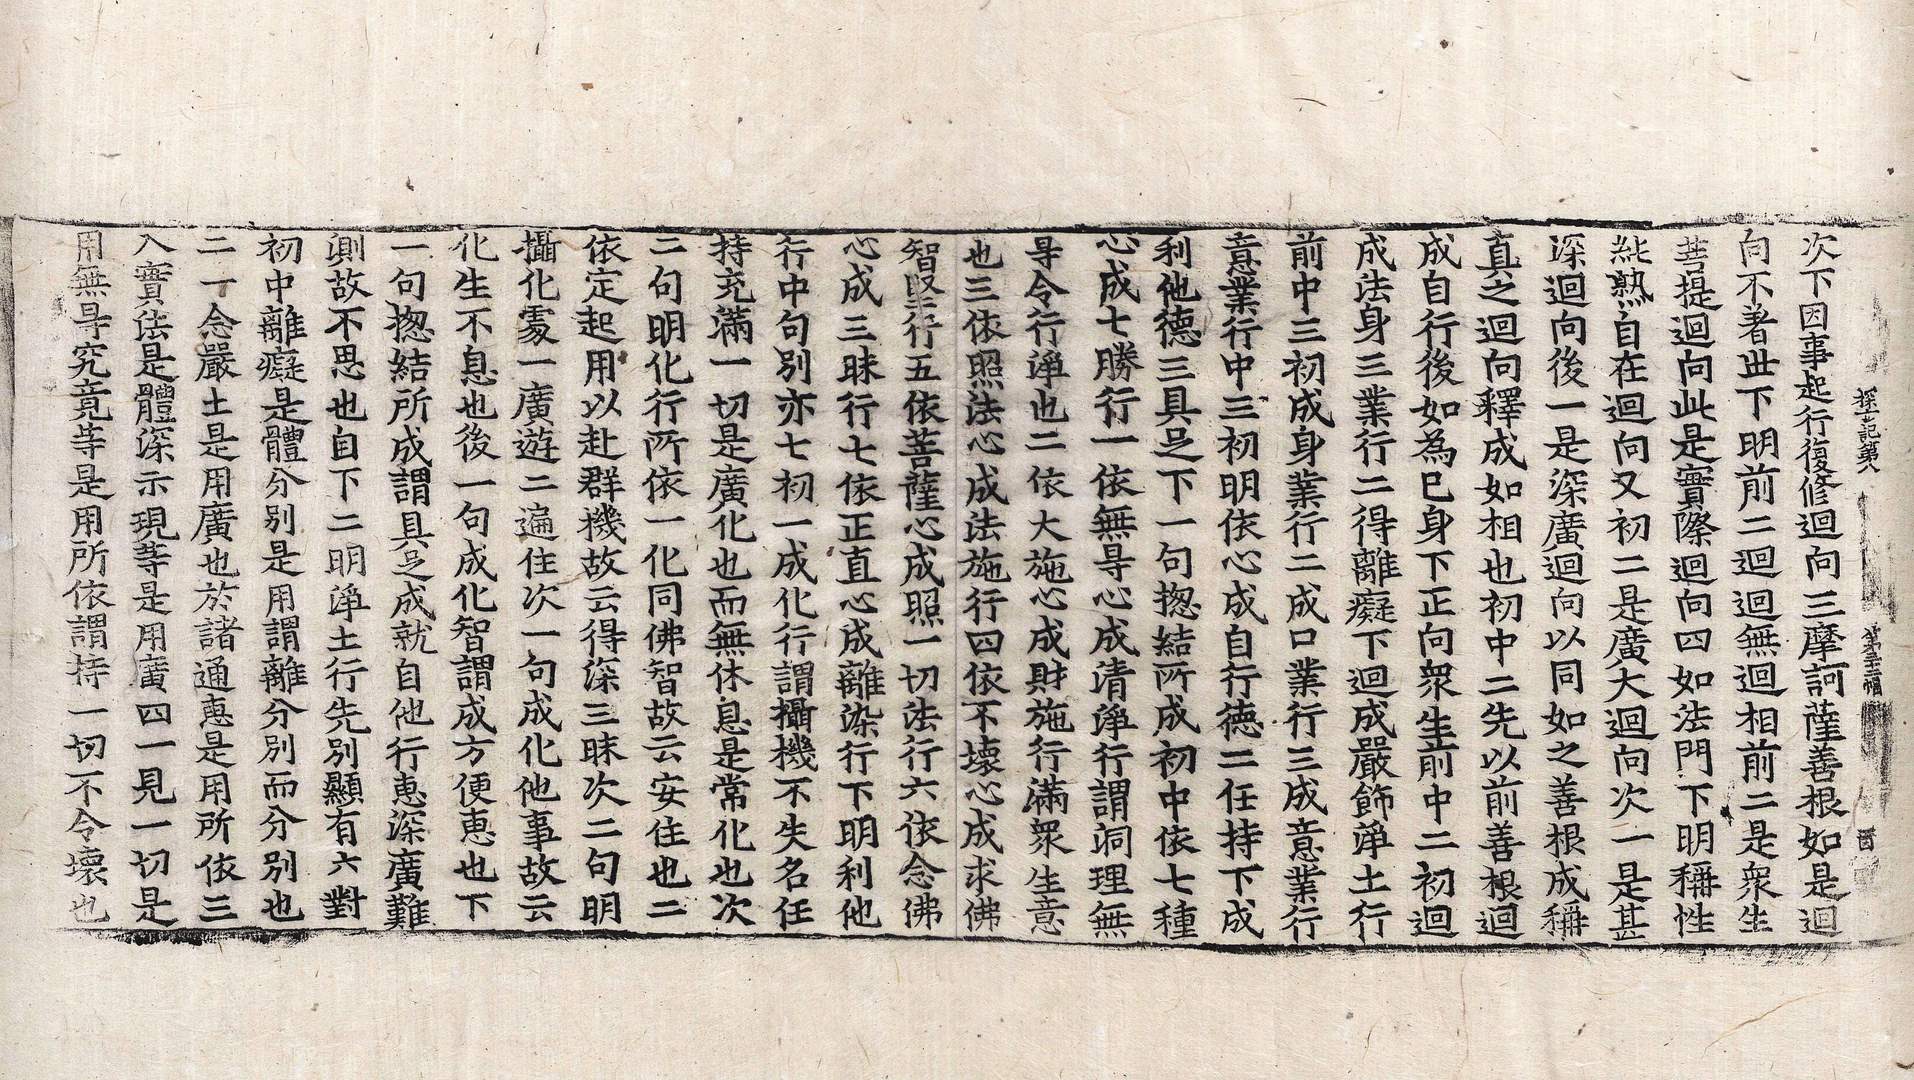 探玄記第八　第三十三幅　酉
次下因事起行復修迴向三摩訶薩善根如是迴
向不著世下明前二迴迴無迴相前二是衆生
菩提迴向此是實際迴向四如法門下明稱性
純熟自在迴向又初二是廣大迴向次一是甚
深迴向後一是深廣迴向以同如之善根成稱
真之迴向釋成如相也初中二先以前善根迴
成自行後如為已身下正向衆生前中二初迴
成法身三業行二得離癡下迴成嚴飾淨土行
前中三初成身業行二成口業行三成意業行
意業行中三初明依心成自行德二任持下成
利他德三具足下一句揔結所成初中依七種
心成七勝行一依無㝵心成清淨行謂洞理無
㝵令行淨也二依大施心成財施行滿衆生意
也三依照法心成法施行四依不壞心成求佛
智堅行五依菩薩心成照一切法行六依念佛
心成三昧行七依正直心成離染行下明利他
行中句別亦七初一成化行謂攝機不失名任
持充滿一切是廣化也而無休息是常化也次
二句明化行所依一化同佛智故云安住也二
依定起用以赴群機故云得深三昧次二句明
攝化處一廣遊二遍住次一句成化他事故云
化生不息也後一句成化智謂成方便惠也下
一句揔結所成謂具足成就自他行惠深廣難
測故不思也自下二明淨土行先別顯有六對
初中離癡是體分別是用謂離分別而分別也
二一念嚴土是用廣也於諸通惠是用所依三
入實法是體深示現等是用廣四一見一切是
用無㝵究竟等是用所依謂持一切不令壞也